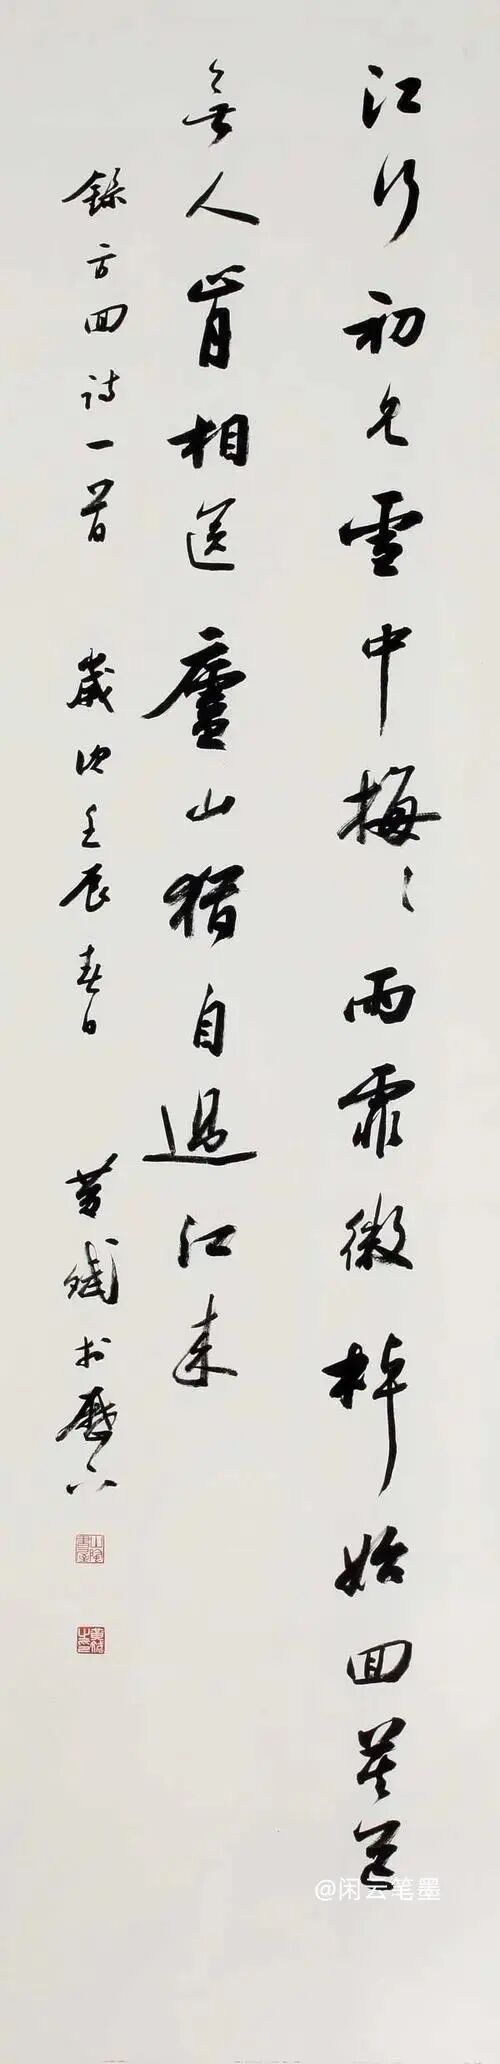 江行初見雪中梅〻雨霏微棹始回莫道
無人肯相送廬山猶自過江來
錄方回詩一首 歲次壬辰春日 黃斌於歷下
@闲云笔墨